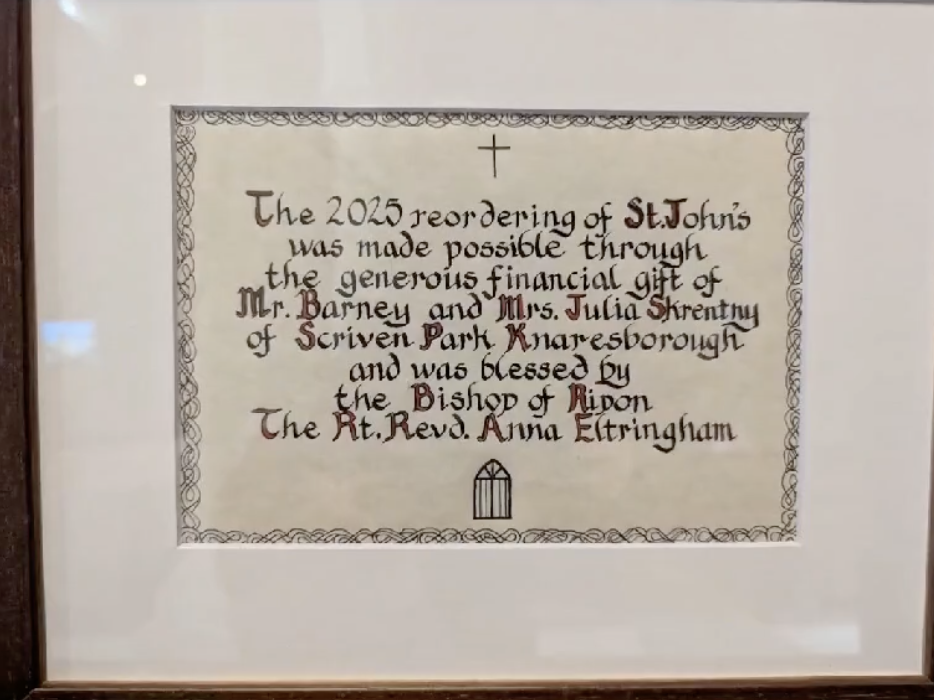 The 2025 reordering of St.John's
was made possible through
the generous financial gift of
Mr. Barney and Mrs. Julia Skrentny
of Scriven Park Knaresborough
and was blessed by
the Bishop of Ripon
The Rt. Revd. Anna Eltringham